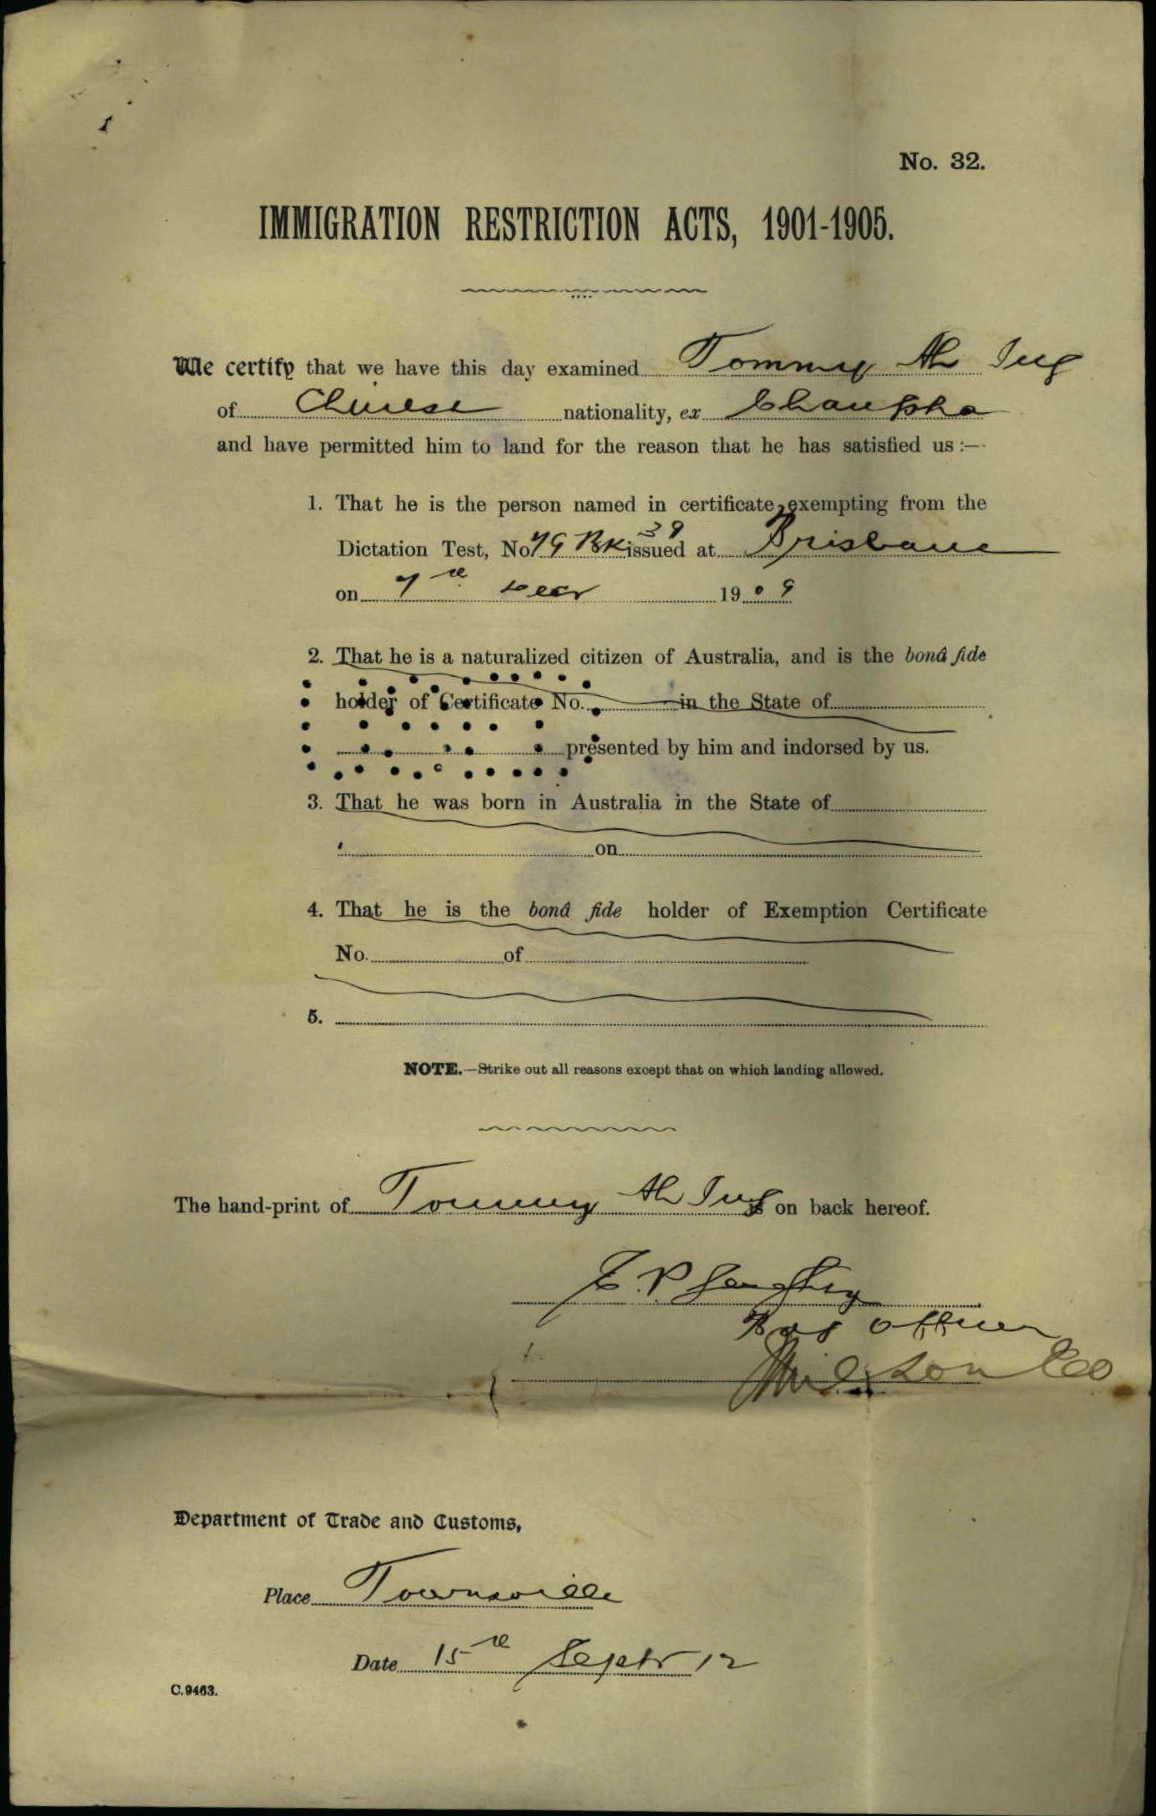 No. 32.
IMMIGRATION RESTRICTION ACTS, 1901-1905.
We certify that we have this day examined Tommy Ah Sug
of Chinese nationality, ex Changsha
and have permitted him to land for the reason that he has satisfied us :—
1. That he is the person named in certificate exempting from the
39
Dictation Test, No. 79 Bk issued at Brisbane
on 7th 1909
2. That he is a naturalized citizen of Australia, and is the bonâ fide
holder of Certificate No. in the State of
presented by him and indorsed by us.
3. That he was born in Australia in the State of
on
4. That he is the bonâ fide holder of Exemption Certificate
No. of
5.
NOTE.—Strike out all reasons except that on which landing allowed.
The hand-print of Tommy Ah Sug is on back hereof.
Officer
Department of Trade and Customs,
Place Townsville
Date 15th Septr 12
C.9463.